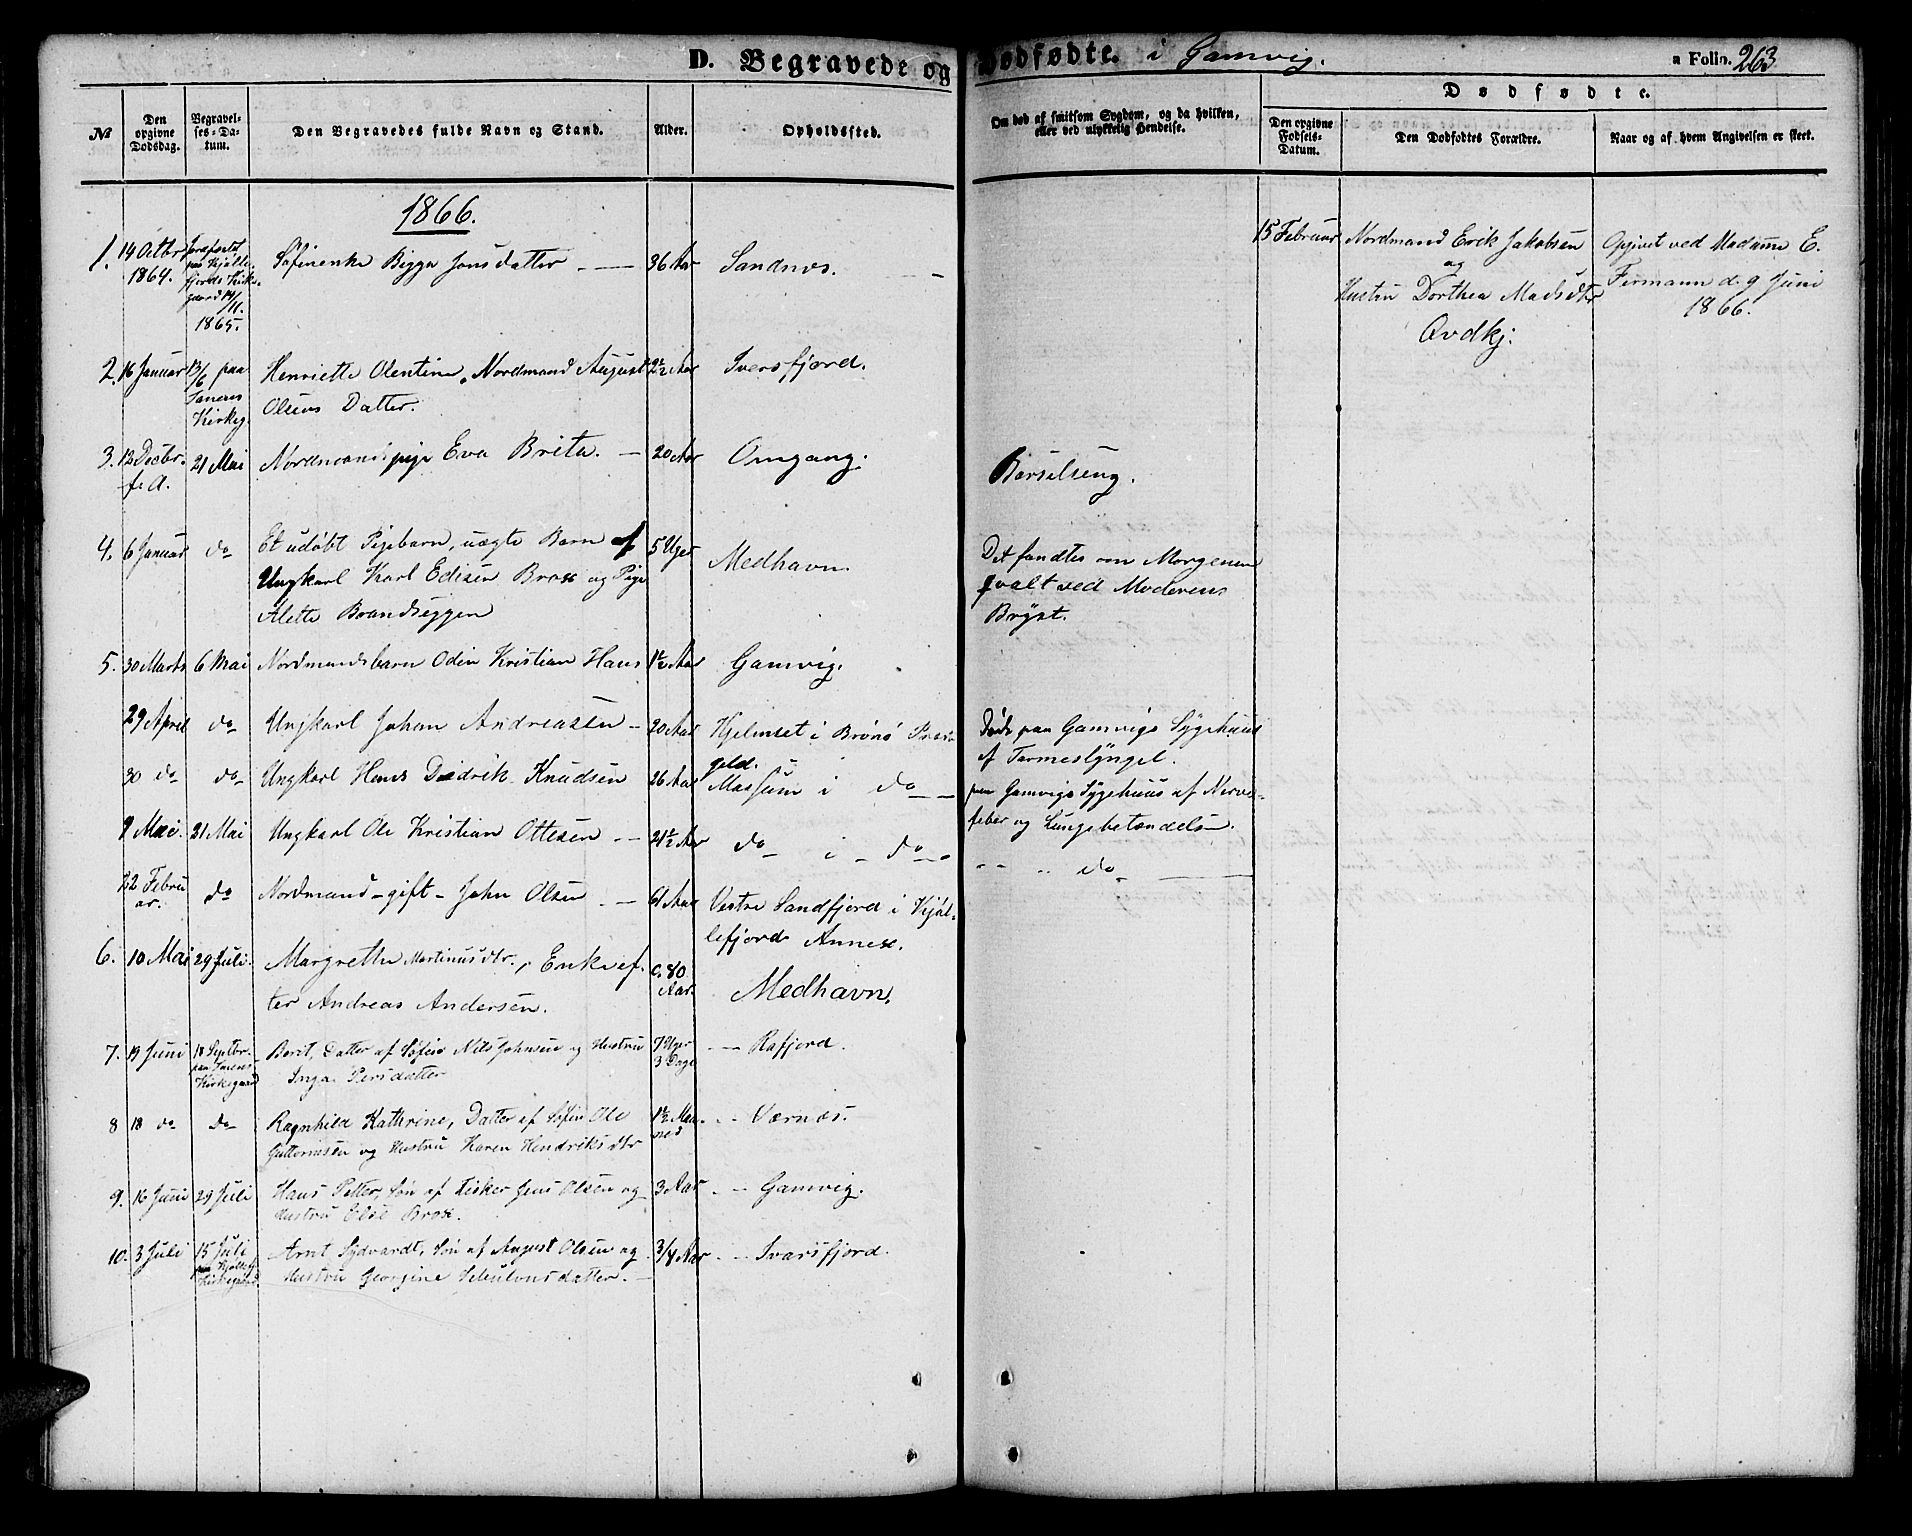 D. Begravede og Dødfødte. i Gamvig.
a Folio. 263
№
Den opgivne Dødsdag.
Begravelses-Datum.
Den Begravedes fulde Navn og Stand.
Alder.
Opholdssted.
Om død af smitsom Sygdom, og da hvilken, eller ved ulykkelig Hendelse.
Dødfødte.
Den opgivne Fødsels-Datum.
Den Dødfødtes Forældre.
Naar og af hvem Angivelsen er skeet.
1866.
1. 14 Octbr Jordfæstet Søfinenke Bigga Jonsdatter — 36 Aar Sandnes.
1864. paa Kjølle-
fjords Kirke-
gaard 14/11.
1865.
15 Februar Nordmand Erik Jakobsen Opgivet ved Madame E.
og Fermann d. 9 Juni
Hustru Dorthea Madsdtr 1866.
Ovdkj.
2. 16 Januar 13/6 paa Henriette Olentine, Nordmand August 2½ Aar Iversfjord.
Tanens Olsens Datter.
Kirkeg.
3. 12 Decbr. 21 Mai Nordmandspige Eva Brita. — 20 Aar Omgang. Barselseng.
f. A.
4. 6 Januar do Et udøbt Pigebarn, uægte Barn af 5 Uger Medhavn. Det fandtes om Morgenen
Ungkarl Karl Edisen Brox og Pige qvalt ved Moderens
Alette Brandseggen Bryst.
5. 30 Marts 6 Mai Nordmandsbarn Odin Kristian Hans 1½ Aar Gamvig.
29 April do Ungkarl Johan Andreasen — 20 Aar Hjelmset i Brønø Præste- Døde paa Gamvigs Sygehuus
geld. af Tarmeslyngel.
30 do do Ungkarl Hans Didrik Knudsen 26 Aar i do paa Gamvigs Sygehuus af Nerve-
feber og Lungebetændelse.
9 Mai. 21 Mai Ungkarl Ole Kristian Ottesen — 21½ Aar do i do do
22 Febru do Nordmand - gift - John Olsen — 61 Aar Vestre Sandfjord i Kjøl-
ar. lefjords Annex.
6. 10 Mai 29 Juli. Margrethe Martinusdtr., Enke ef- c. 80 Medhavn.
ter Andreas Andersen. Aar.
7. 19 Juni 18 Septbr. Berit, Datter af Søfin Nils Johnsen og Hustru 7 Uger — Rafjord.
paa Tanens Inga Persdatter 3 Dage
Kirkegaard
8 18 do do Ragnhild Kathrine, Datter af Søfin Ole 1½ Maa- — Værnæs.
Guttormsen og Hustru Karen Hendriksdtr ned
9. 16 Juni 29 Juli Hans Petter, Søn af Fisker Jens Olsen og 3 Aar — Gamvig.
Hustru Else Brox.
10. 3 Juli 15 Juli Arnt Sydvardt, Søn af August Olsen og 3/4 Aar — Ivarsfjord.
paa Kjøllefj. Hustru Georgine datter.
Kirkegaard.